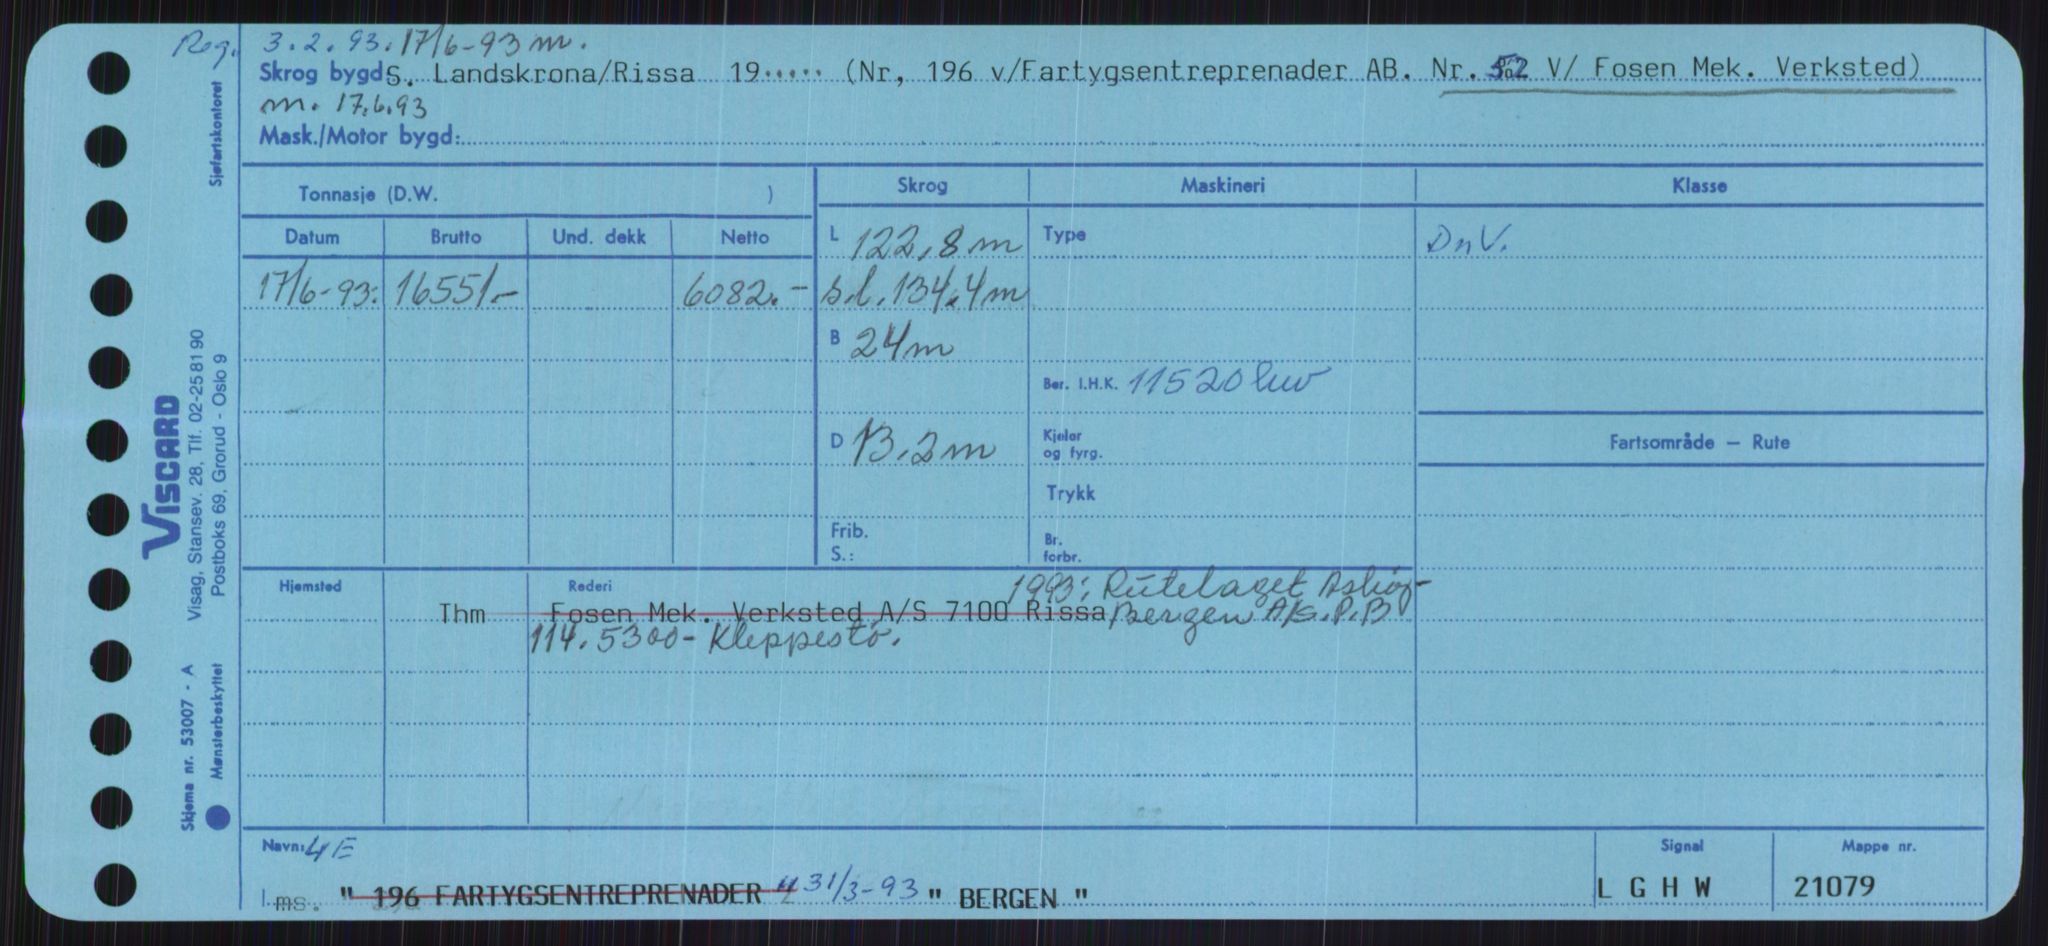 Reg. 3.2.93. 17/6-93 m.
Skrog bygd S. Landskrona/Rissa 19..... (Nr, 196 v/Fartygsentreprenader AB. Nr. 52 V/ Fosen Mek. Verksted)
m. 17.6.93
Mask./Motor bygd:
Tonnasje (D.W. )
Skrog
Maskineri
Klasse
Datum
Brutto
Und. dekk
Netto
L 122,8 m
Type
DnV.
17/6-93. 16551.- 6082.- s.l. 134.4 m
B 24 m
Ber. I.H.K. 11520 kw
D 13.2 m
Kjelar
og fyrg.
Fartsområde – Rute
Trykk
Frib.
S.:
Br.
forbr.
Hjemsted
Rederi
1993: Rutelaget Askøy-
Thm Fosen Mek. Verksted A/S 7100 Rissa Bergen A/S. P.B
114. 5300 - Kleppestø.
Navn: 4E
Signal
Mappe nr.
ms. " 196 FARTYGSENTREPRENADER " 31/3-93 " BERGEN "
L G H W
21079
Sjøfartskontoret
VISCARD
Visag, Stansev. 28, Tlf. 02-25 81 90
Postboks 69, Grorud - Oslo 9
Skjema nr. 53007 - A
Mønsterbeskyttet